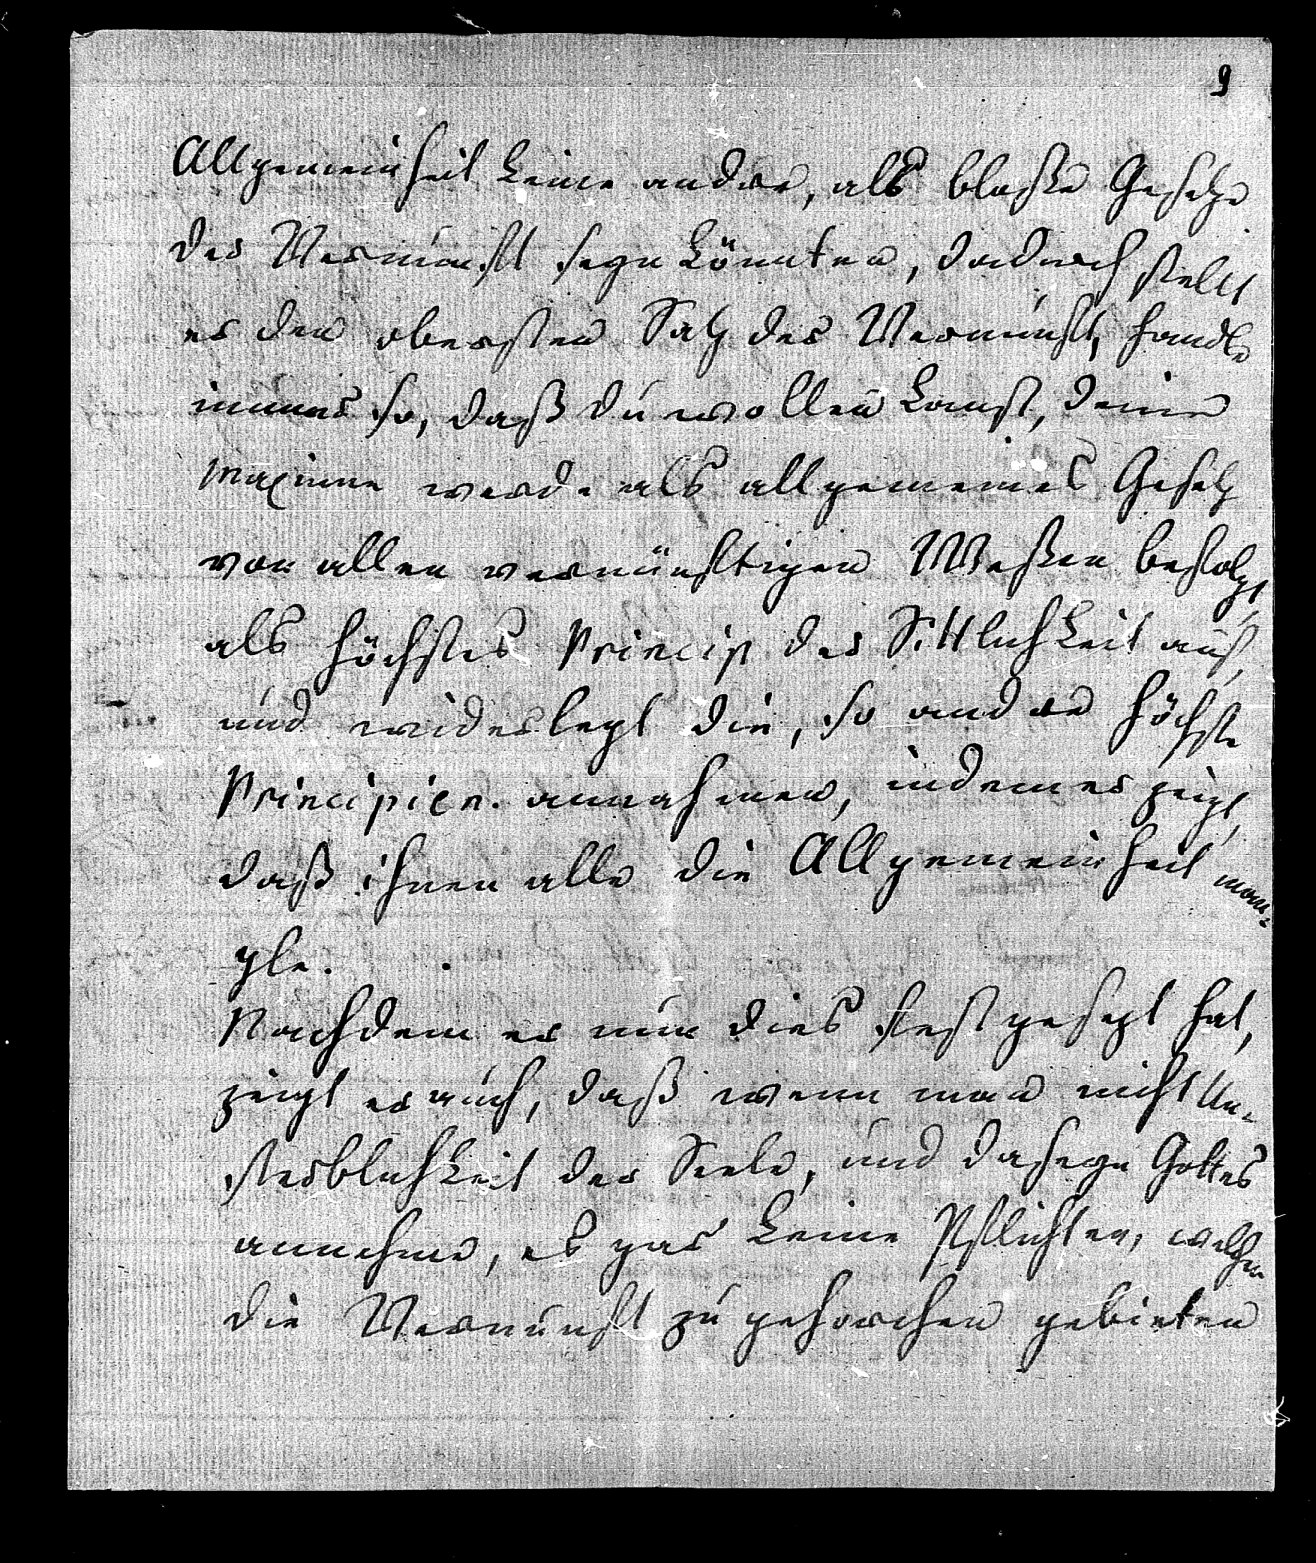 9
Allgemeinheit keine andre, als bloße Gesetze
der Vernunft seyn könnten, dadurch stellt
er den obersten Satz der Vernunft, handle
immer so, daß du wollen kanst, deine
Maxime werde als allgemeines Gesetz
von allen vernünftigen Weßen befolgt,
als höchstes Princip der Sittlichkeit auf,
und widerlegt die, so andre höchste
Principien annahmen, indem er zeigt,
daß ihnen alle die Allgemeinheit man-
gle.
Nachdem er nun dies festgesezt hat,
zeigt er auch, daß wenn man nicht Un-
sterblichkeit der Seele, und daseyn Gottes
annehme, es gar keine Pflichten, welchen
die Vernunft zu gehorchen gebieten